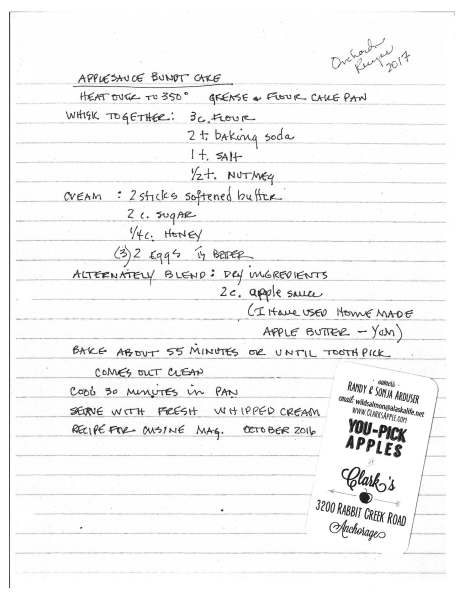 Orchard
Recipe
2017
APPLESAUCE BUNDT CAKE
HEAT OVEN TO 350° GREASE & FLOUR CAKE PAN
WHISK TOGETHER: 3c. FLOUR
2 t. baking soda
1 t. SALT
1/2 t. NUTMEG
CREAM : 2 sticks softened butter
2 c. SUGAR
1/4 c. HONEY
(3) 2 Eggs BETTER
ALTERNATELY BLEND: DRY INGREDIENTS
2 c. apple sauce
(I HAVE USED HOME MADE
APPLE BUTTER - YUM)
BAKE ABOUT 55 MINUTES OR UNTIL TOOTHPICK
COMES OUT CLEAN
COOL 30 MINUTES in PAN
SERVE WITH FRESH WHIPPED CREAM
RECIPE FOR CUISINE MAG. OCTOBER 2016
owners:
RANDY & SONJA ARDUSER
email: wildsalmon@alaskalife.net
WWW.CLARKSAPPLE.COM
YOU-PICK
APPLES
at
Clark's
3200 RABBIT CREEK ROAD
Anchorage